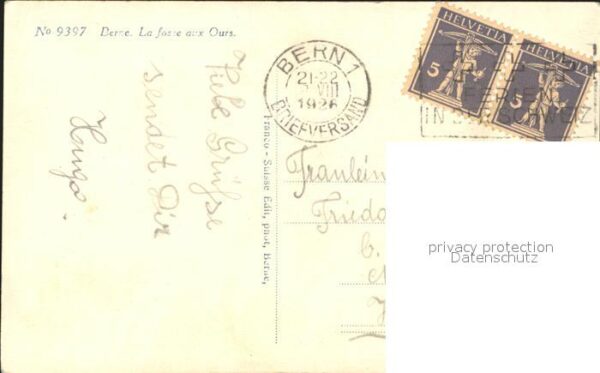 No 9397 Berne. La fosse aux Ours.
Viele Grüsse
sendet Dir
Hugo.
Franco-Suisse Edit., phot., Berne.
BERN 1
21-22
VIII
1926
BRIEFVERSAND
HELVETIA HELVETIA
5 5
FERIEN
IN DER SCHWEIZ
Fräulein
Frieda
b.
privacy protection
Datenschutz